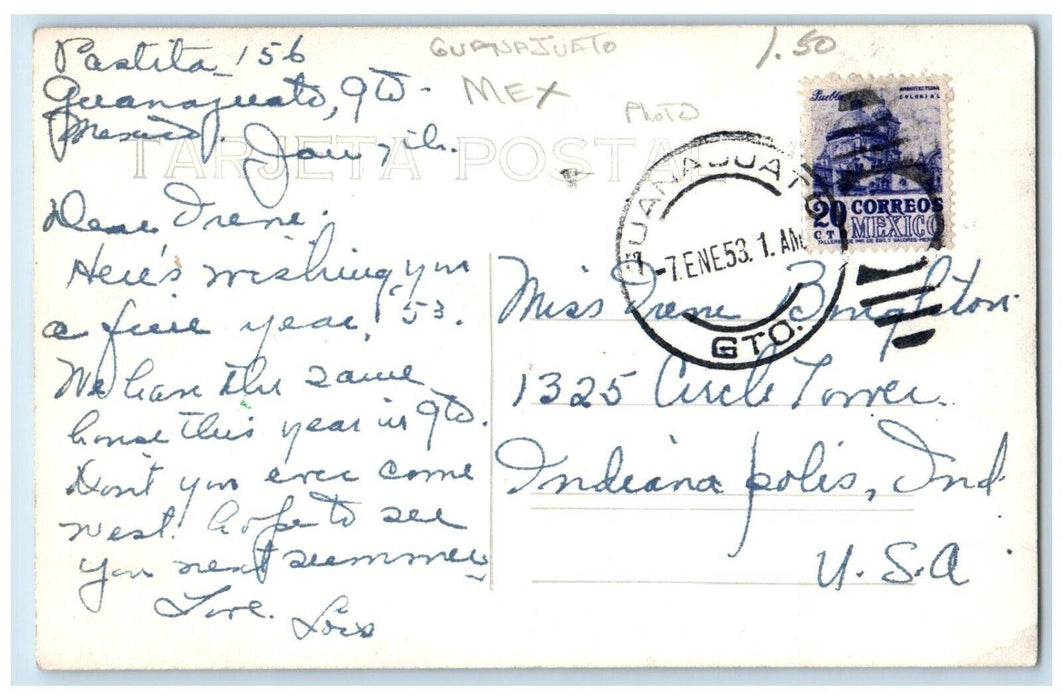 GUANAJUATO
MEX
PHOTO
1.50
TARJETA POSTAL
Pastita 156
Guanajuato, Gto.
Mexico. Jan
Dear Irene:
Here's wishing you
a fine year, '53.
We have the same
house this year in Gto.
Don't you ever come
west? hope to see
you next summer
Love.
Lois
Puebla
ARQUITECTURA
COLONIAL
20 CORREOS
CTS MEXICO
GUANAJUATO
-7.ENE.53. 1. AM
GTO.
Miss Irene
1325 Circle Tower.
Indianapolis, Ind.
U.S.A